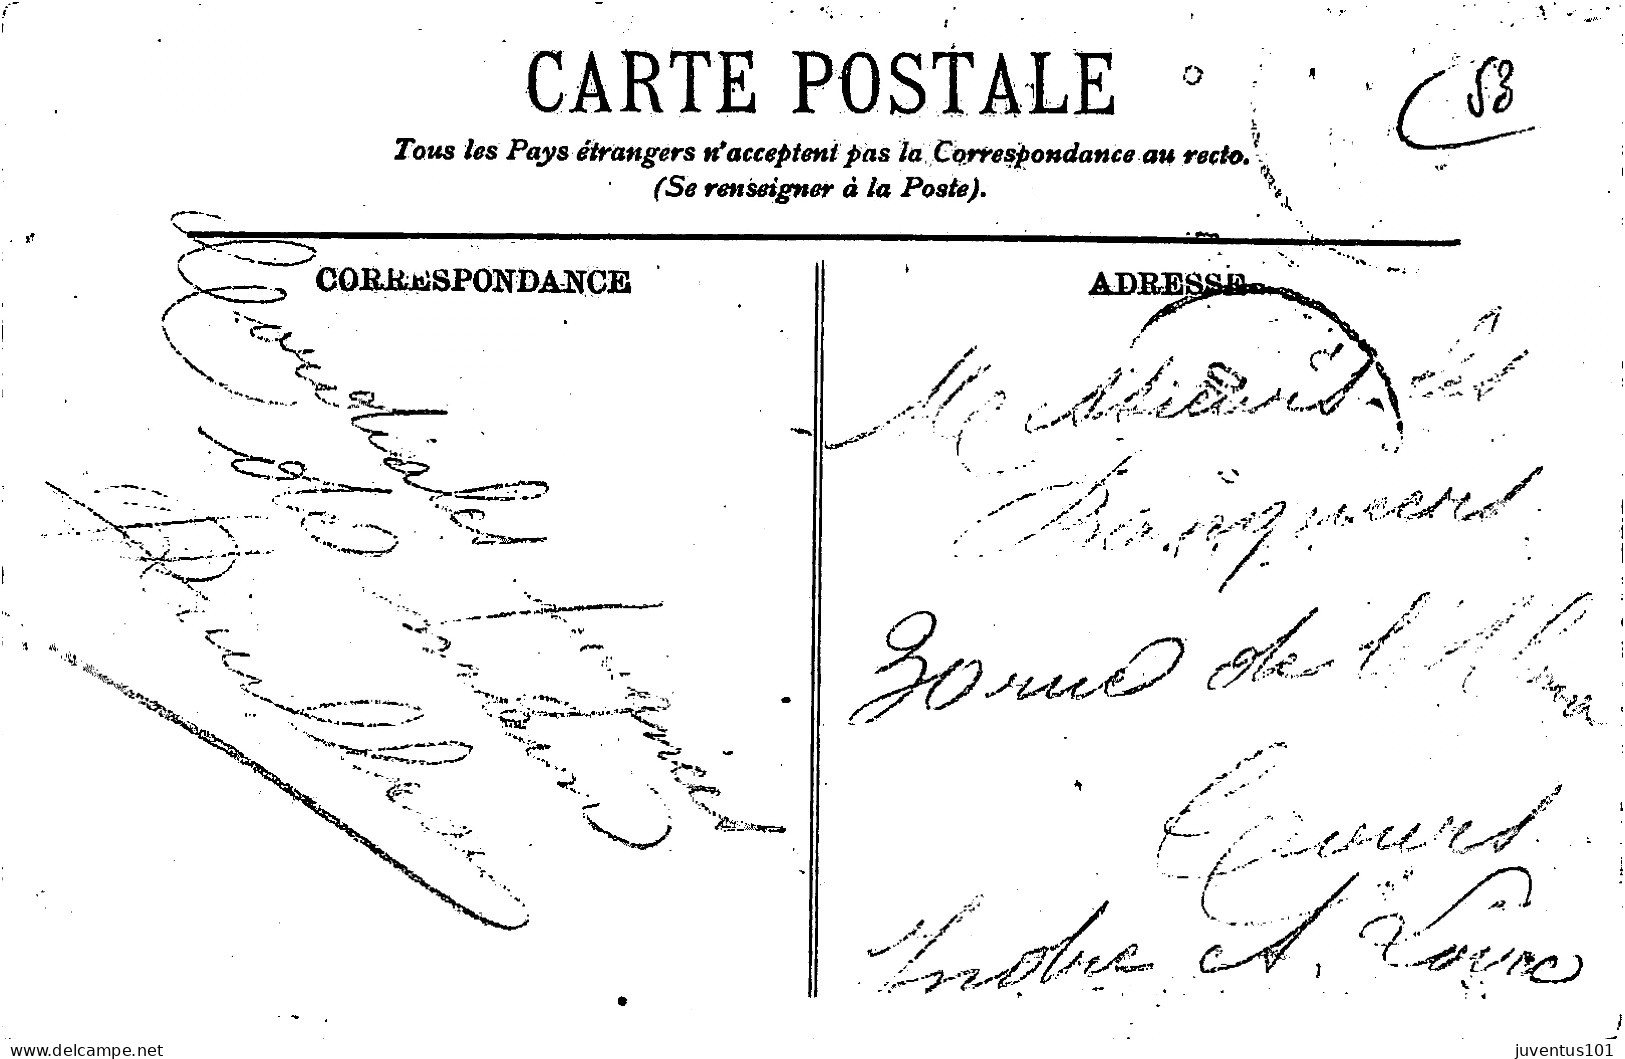 CARTE POSTALE
53
Tous les Pays étrangers n'acceptent pas la Correspondance au recto.
(Se renseigner à la Poste).
CORRESPONDANCE
ADRESSE
Cordiales
de
Messieurs les
Banquiers
30 rue de l'Alma
Tours
Indre et Loire
www.delcampe.net
juventus101